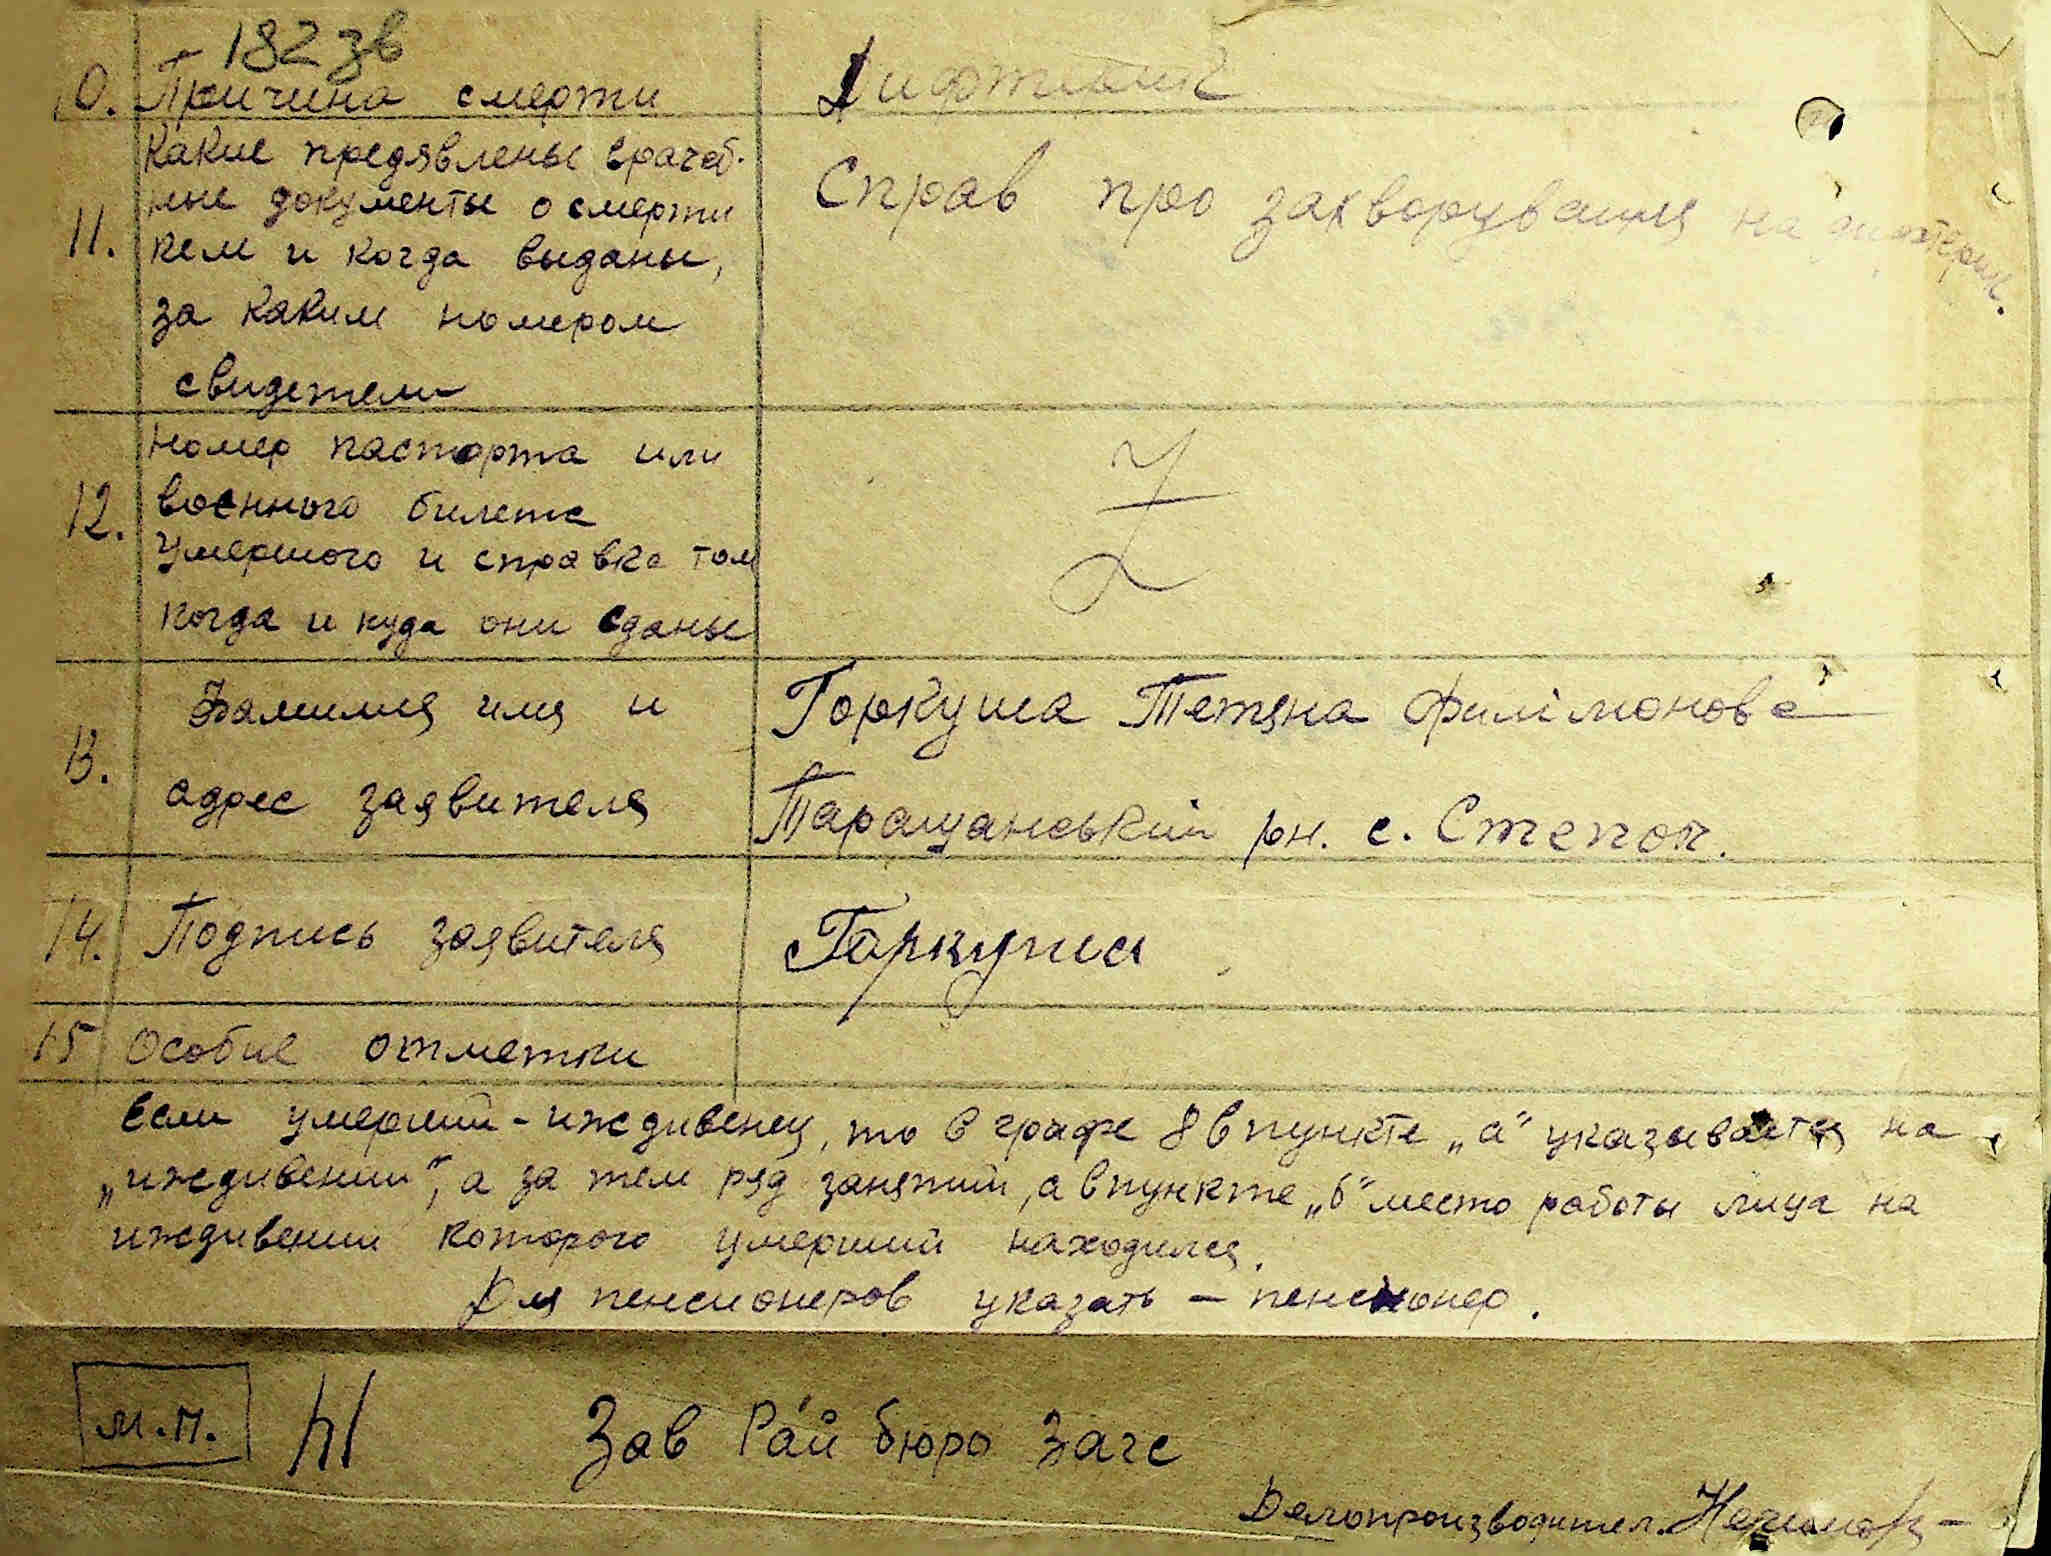 182 зв
10. Причина смерти
Какие предявлены врачеб-
ные документы о смерти
11. кем и когда выданы,
за каким номером
свидетели
Справ про захворування на дифтерит.
номер паспорта или
12. военного билета
умершого и справка том
когда и куда они сданы
13. Фамилия имя и
адрес заявителя
Горкуша Тетяна Филімонова
Таращанський рн. с. Степок.
14. Подпись заявителя Гаркуша
15 Особие отметки
Если умерший - иждивенец, то в графе 8 в пункте „а" указывается на
„иждивении", а за тем ряд занятий, а в пункте „б" место работы лица на
иждивении которого умерший находился.
Для пенсионеров указать - пенсионер.
м.п. Зав Рай бюро Загс
Делопроизводител.